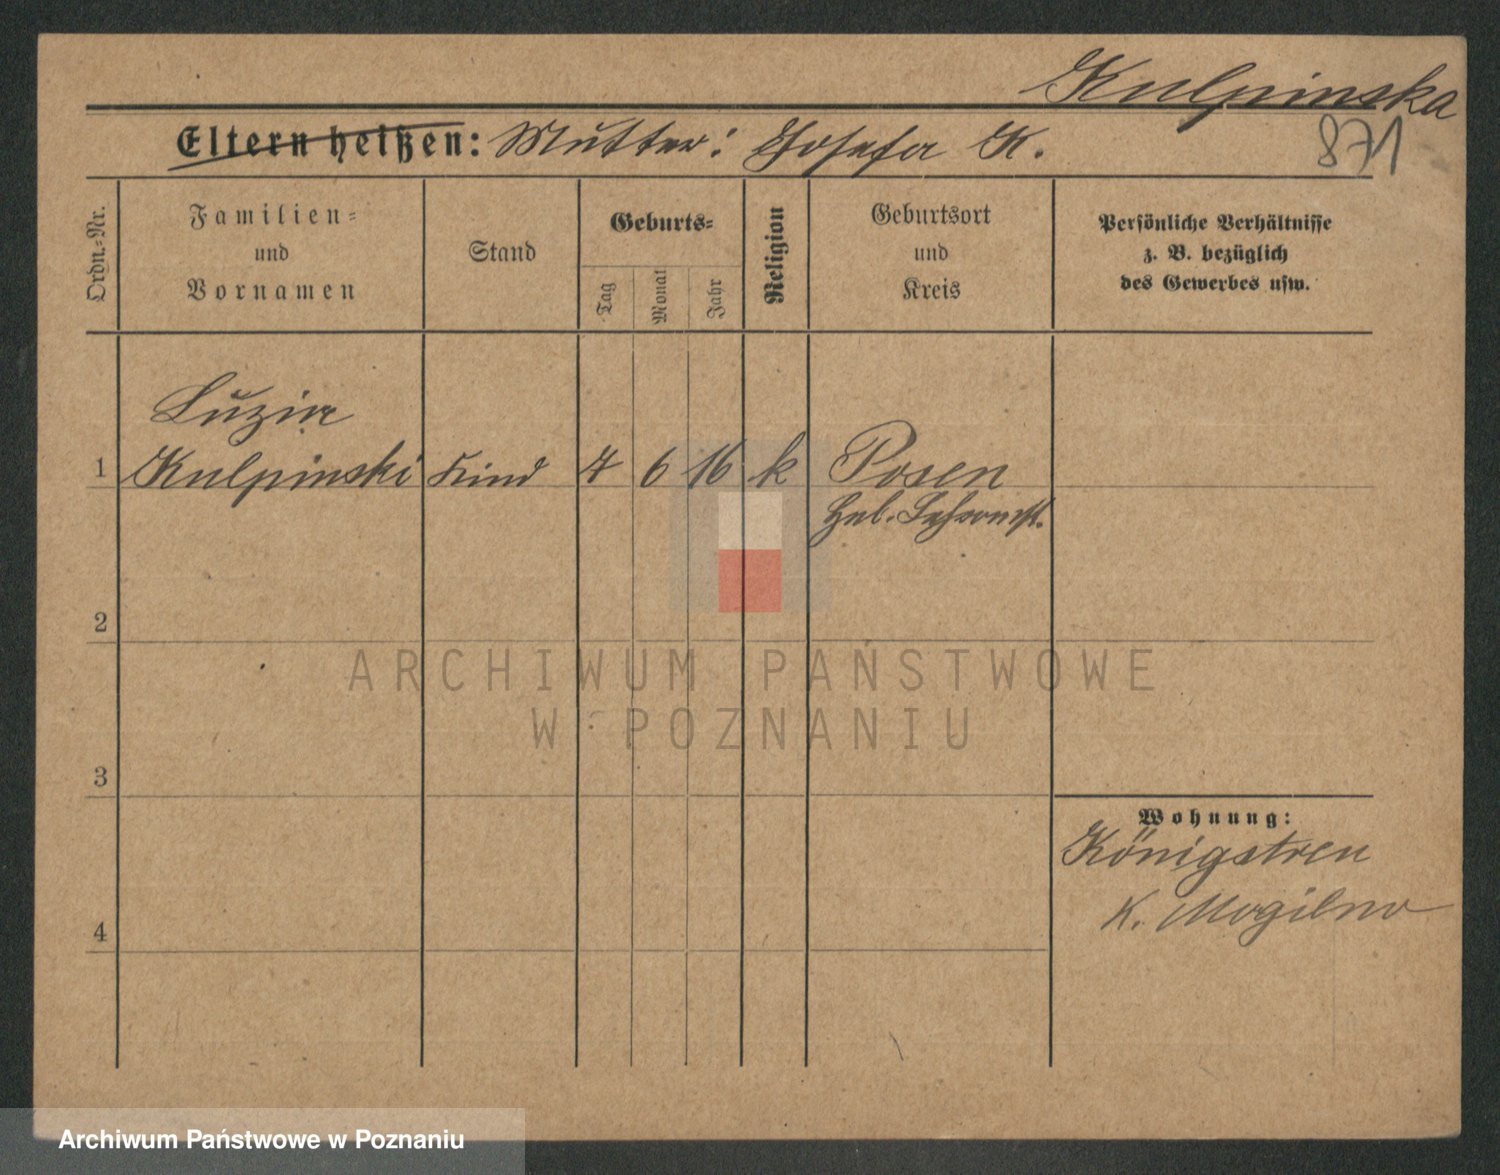 Kulpinska
871
Eltern heißen: Mutter: Josefa K.
Ordn.=Nr.
Familien=
und
Vornamen
Stand
Geburts=
Tag
Monat
Jahr
Religion
Geburtsort
und
Kreis
Persönliche Verhältnisse
z. B. bezüglich
des Gewerbes usw.
Luzia
1 Kulpinski Kind 7 6 16 k Posen
2
3
4
Wohnung:
Königstreu
K. Mogilno
ARCHIWUM PAŃSTWOWE
W POZNANIU
Archiwum Państwowe w Poznaniu